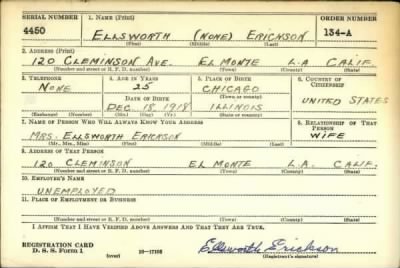 SERIAL NUMBER 1. NAME (Print) ORDER NUMBER
4450 ELLSWORTH (NONE) ERICKSON 134-A
(First) (Middle) (Last)
2. ADDRESS (Print)
120 CLEMINSON AVE. EL MONTE L.A. CALIF.
(Number and street or R. F. D. number) (Town) (County) (State)
3. TELEPHONE 4. AGE IN YEARS 5. PLACE OF BIRTH 6. COUNTRY OF CITIZENSHIP
NONE 25 CHICAGO
DATE OF BIRTH (Town or county) UNITED STATES
DEC. 18, 1918 ILLINOIS
(Exchange) (Number) (Mo.) (Day) (Yr.) (State or country)
7. NAME OF PERSON WHO WILL ALWAYS KNOW YOUR ADDRESS 8. RELATIONSHIP OF THAT PERSON
MRS. ELLSWORTH ERICKSON WIFE
(Mr., Mrs., Miss) (First) (Middle) (Last)
9. ADDRESS OF THAT PERSON
120 CLEMINSON EL MONTE L.A. CALIF.
(Number and street or R. F. D. number) (Town) (County) (State)
10. EMPLOYER'S NAME
UNEMPLOYED
11. PLACE OF EMPLOYMENT OR BUSINESS
(Number and street or R. F. D. number) (Town) (County) (State)
I AFFIRM THAT I HAVE VERIFIED ABOVE ANSWERS AND THAT THEY ARE TRUE.
REGISTRATION CARD
D. S. S. Form 1 16-17105 Ellsworth Erickson
(over) (Registrant's signature)